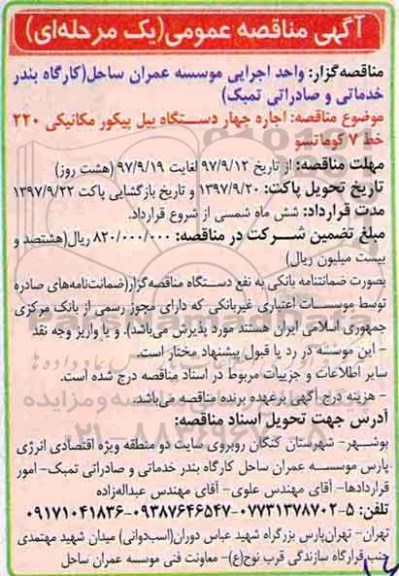 آگهی مناقصه عمومی(یک مرحله‌ای)
مناقصه‌گزار: واحد اجرایی موسسه عمران ساحل(کارگاه بندر
خدماتی و صادراتی تمبک)
موضوع مناقصه: اجاره چهار دستگاه بیل پیکور مکانیکی ۲۲۰
خط ۷ کوماتسو
مهلت مناقصه: از تاریخ ۹۷/۹/۱۲ لغایت ۹۷/۹/۱۹ (هشت روز)
تاریخ تحویل پاکت: ۱۳۹۷/۹/۲۰ و تاریخ بازگشایی پاکت ۱۳۹۷/۹/۲۲
مدت قرارداد: شش ماه شمسی از شروع قرارداد.
مبلغ تضمین شرکت در مناقصه: ۸۲۰/۰۰۰/۰۰۰ ریال(هشتصد و
بیست میلیون ریال)
بصورت ضمانتنامه بانکی به نفع دستگاه مناقصه‌گزار(ضمانت‌نامه‌های صادره
توسط موسسات اعتباری غیربانکی که دارای مجوز رسمی از بانک مرکزی
جمهوری اسلامی ایران هستند مورد پذیرش می‌باشد). و یا واریز وجه نقد
- این موسسه در رد یا قبول پیشنهاد مختار است.
سایر اطلاعات و جزییات مربوط در اسناد مناقصه درج شده است.
- هزینه درج آگهی برعهده برنده مناقصه می‌باشد.
آدرس جهت تحویل اسناد مناقصه:
بوشهر- شهرستان کنگان روبروی سایت دو منطقه ویژه اقتصادی انرژی
پارس موسسه عمران ساحل کارگاه بندر خدماتی و صادراتی تمبک- امور
قراردادها- آقای مهندس علوی- آقای مهندس عبداله‌زاده
تلفن: ۵-۰۷۷۳۱۳۷۸۷۰۲-۰۹۳۸۷۶۴۶۵۴۷-۰۹۱۷۱۰۴۱۸۳۶
تهران- تهران‌پارس بزرگراه شهید عباس دوران(اسب‌دوانی) میدان شهید مهتمدی
جنب قرارگاه سازندگی قرب نوح(ع)- معاونت فنی موسسه عمران ساحل